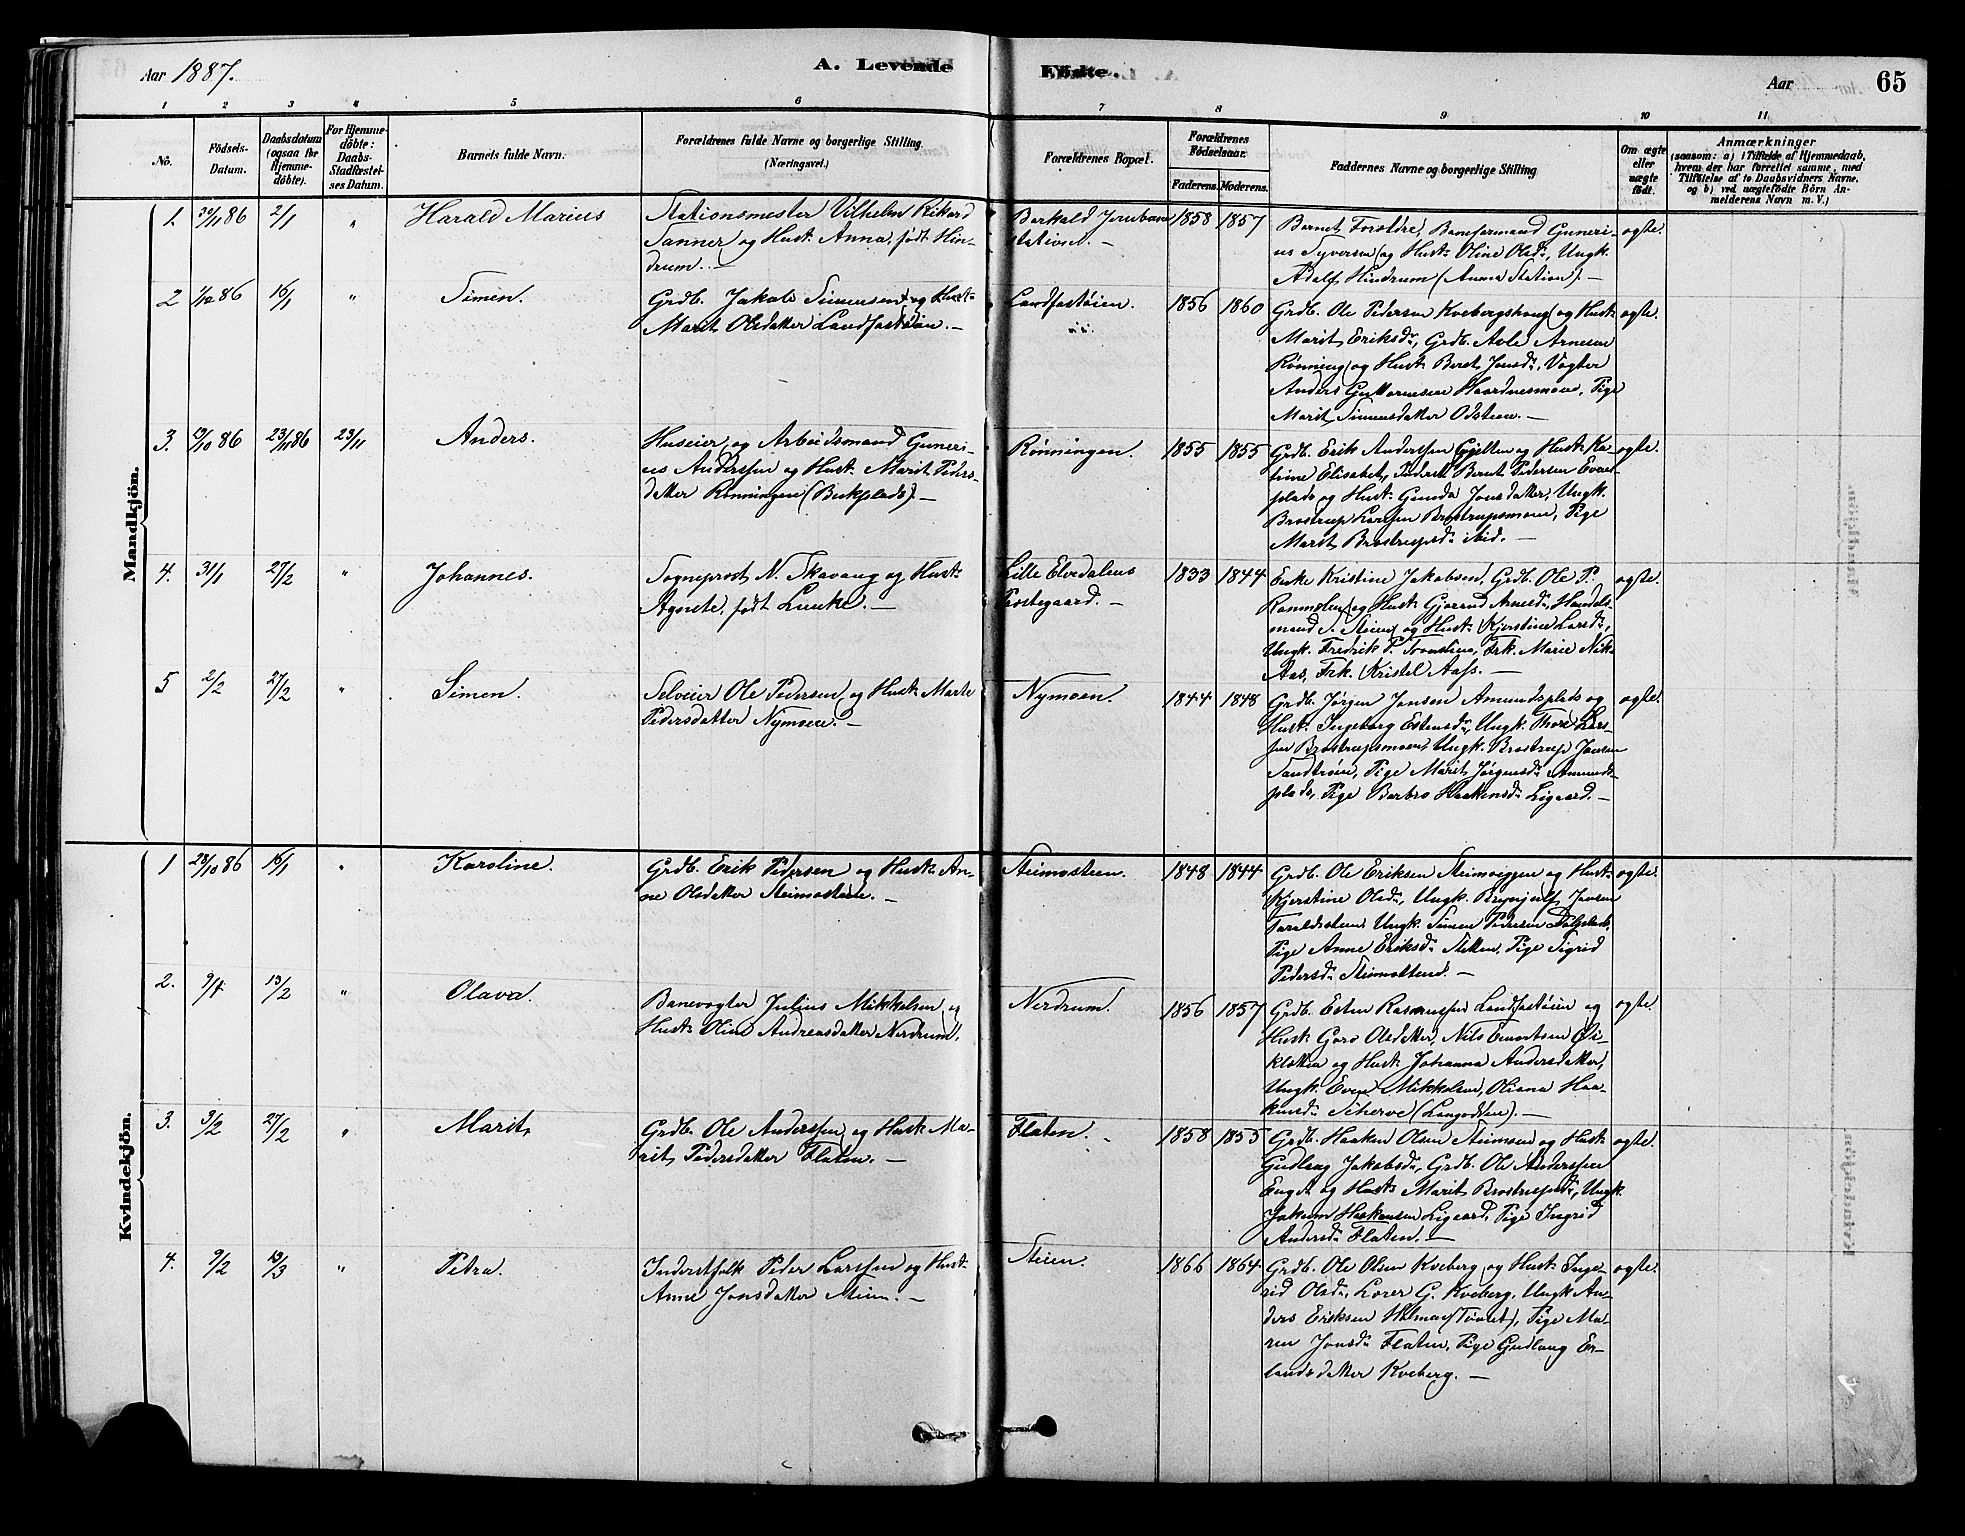 Aar 1887.
A. Levende
Fødte.
Aar
65
1 2 3 4 5 6 7 8 9 10 11
No.
Fødsels-
Datum.
Daabsdatum
(ogsaa for
Hjemme-
døbte).
For Hjemme-
døbte:
Daabs-
Stadfæstel-
ses Datum.
Barnets fulde Navn.
Forældrenes fulde Navne og borgerlige Stilling
(Næringsvei.)
Forældrenes Bopæl.
Forældrenes
Fødselsaar.
Faderens. Moderens.
Faddernes Navne og borgerlige Stilling
Om ægte
eller
uægte
født.
Anmærkninger
(saasom: a) i Tilfælde af Hjemmedaab,
hvem der har forrettet samme, med
Tilføielse af to Daabsvidners Navne,
og b) ved uægtefødte Börn An-
melderens Navn m. V.)
Mandkjön.
1. 30/11 86 2/1 " Harald Marius
Stationsmester Vilhelm Rikard
Tanner og Hust. Anna, født Hin-
drum. —
Barkald Jernbane
station. —
1858 1857
Barnets Forældre, Baneformand Guneri-
us Syversen og Hust. Oline Olsdr, Ungk.
Adolf Hindrum (Anna Station). —
ægte.
2 1/12 86 16/1 " Simen.
Grdb. Jakob Simensen og Hust.
Marit Olsdatter Landfastøien. —
Landfastøien.
1856 1860
Grdb. Ole Pedersen Kvebergshaug og Hust.
Marit Eriksdr, Grdb. Avle Arnesen
Rønning og Hust. Beret Jonsdr, Vogter
Anders Guttormsen Haardnesmoen, Pige
Marit Simensdatter Odsteen. —
ægte.
3. 13/10 86 23/11 86 23/11 Anders.
Huseier og Arbeidsmand Guneri-
us Anderssen og Hust. Marit Peders-
datter Rønningen (Bækplads). —
Rønningen.
1855 1855
Grdb. Erik Anderssen Gjelten og Hust. Ka-
trine Elisabet, Inderst Bernt Pedersen Evens-
plads og Hust. Gunda Jonsdatter, Ungk.
Brostrup Larssen Brostrupsmoen, Pige
Marit Brostrupsdr ibid. —
ægte.
4. 31/1 27/2 " Johannes.
Sogneprest N. Skavang og Hust.
Agnete, født Lunke. —
Lille Elvedalens
Prestegaard. —
1833 1844
Enke Kristine Jakobsen, Grdb. Ole P.
Rammolen og Hust. Gjørud Arnesdr, Handels-
mand S. Steien og Hust. Kjerstine Larsdr,
Ungk. Fredrik P. Tronslien, Frk. Marie Nik.
Aas, Frk. Kristel Aass. —
ægte.
5 2/2 27/2 " Simen.
Selveier Ole Pedersen og Hust. Marte
Pedersdatter Nymoen. —
Nymoen.
1844 1848
Grdb. Jørgen Jonsen Amundsplads og
Hust. Ingeborg Estensdr, Ungk. Thore Lars-
sen Brostrupsmoen, Ungk. Brostrup Jonsen
Sandtrøen, Pige Marit Jørgensdr Amunds-
plads, Pige Barbro Haakensdr Ligaard. —
ægte.
Kvindekjön.
1 28/10 86 16/1 " Karoline.
Grdb. Erik Pedersen og Hust. An-
ne Olsdatter Steimosteen. —
Steimosteen.
1848 1844
Grdb. Ole Eriksen Steimoeggen og Hust.
Kjerstine Olsdr, Ungk. Brynjulf Jonsen
Taraldsteen, Ungk. Simen Pedersen
Pige Anne Eriksdr Stetten, Pige Sigrid
Pedersdr Steimosteen. —
ægte.
2. 9/1 13/2 " Olava.
Banevogter Julius Mikkelsen og
Hust. Oline Andreasdatter Nerdrum.
Nerdrum.
1856 1857
Grdb. Esten Rasmussen Landfastøien og
Hust. Goro Olsdatter, Nils Enertsen Øi-
kløtten og Hust. Johanna Andersdatter,
Ungk. Even Mikkelsen, Oliana Haa-
kensdr (Langodden). —
ægte
3. 3/2 27/2 " Marit.
Grdb. Ole Anderssen og Hust. Ma-
rit Pedersdatter Flaten. —
Flaten. —
1858 1855
Grdb. Haaken Olsen Steimoen og Hust.
Gudlaug Jakobsdr, Grdb. Ole Anderssen
Enget og Hust. Marit Brostrupsdr, Ungk.
Jakum Haakensen Ligaard, Pige Ingrid
Andersdr Flaten. —
ægte.
4. 9/2 13/3 " Petra.
Inderstfolk Peder Larssen og Hust.
Anne Jonsdatter Steien. —
Steien.
1866 1864
Grdb. Ole Olsen Kveberg og Hust. Inge-
rid Olsdr, Lærer G. Kveberg, Ungk. An-
ders Eriksen Holmen (Tønset), Pige Ma-
ren Jonsdr Flaten, Pige Gudlaug Er-
landsdatter Kveberg. —
ægte.